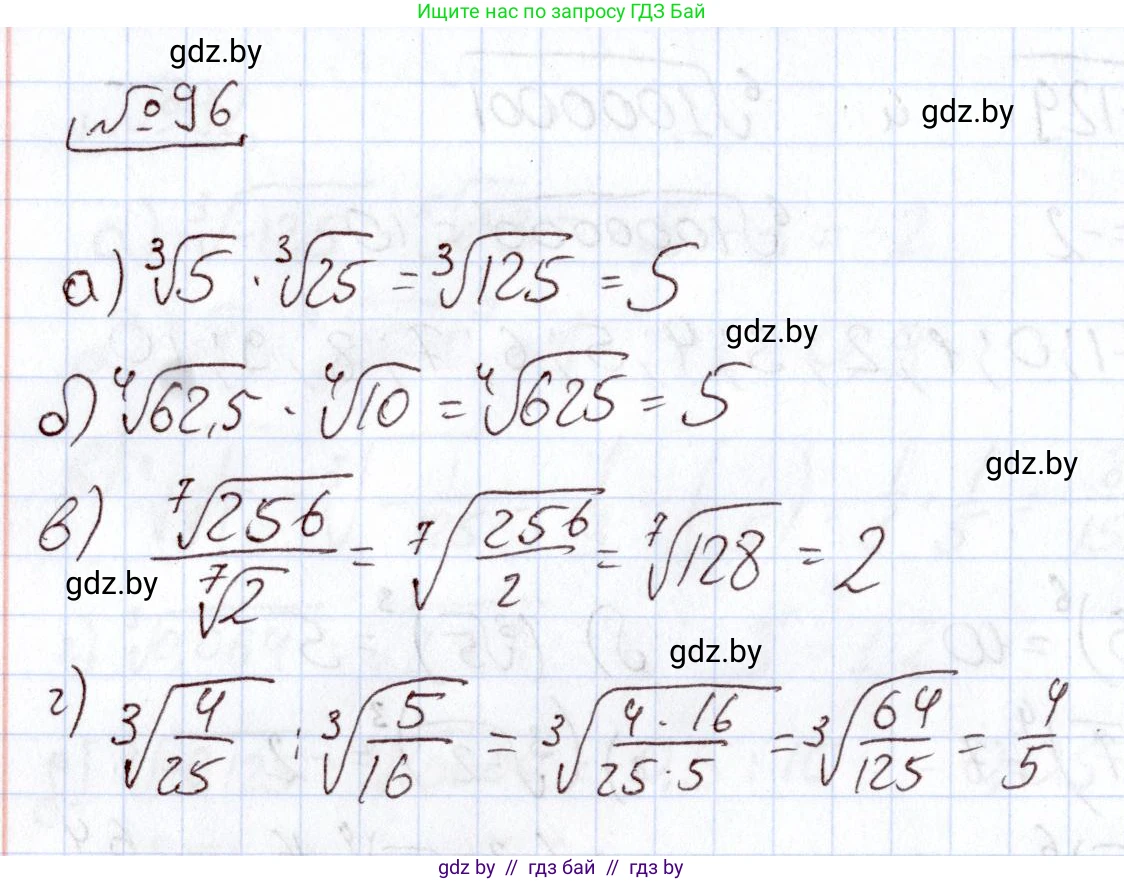 Ищите нас по запросу ГДЗ Бай
gdz.by
№ 96
gdz.by
а) ∛5 · ∛25 = ∛125 = 5
gdz.by
б) ∜62,5 · ∜10 = ∜625 = 5
gdz.by
в) ⁷√256 / ⁷√2 = ⁷√(256/2) = ⁷√128 = 2
gdz.by
gdz.by
г) ∛(4/25) : ∛(5/16) = ∛(4·16/25·5) = ∛(64/125) = 4/5
gdz.by // гдз бай // гдз by